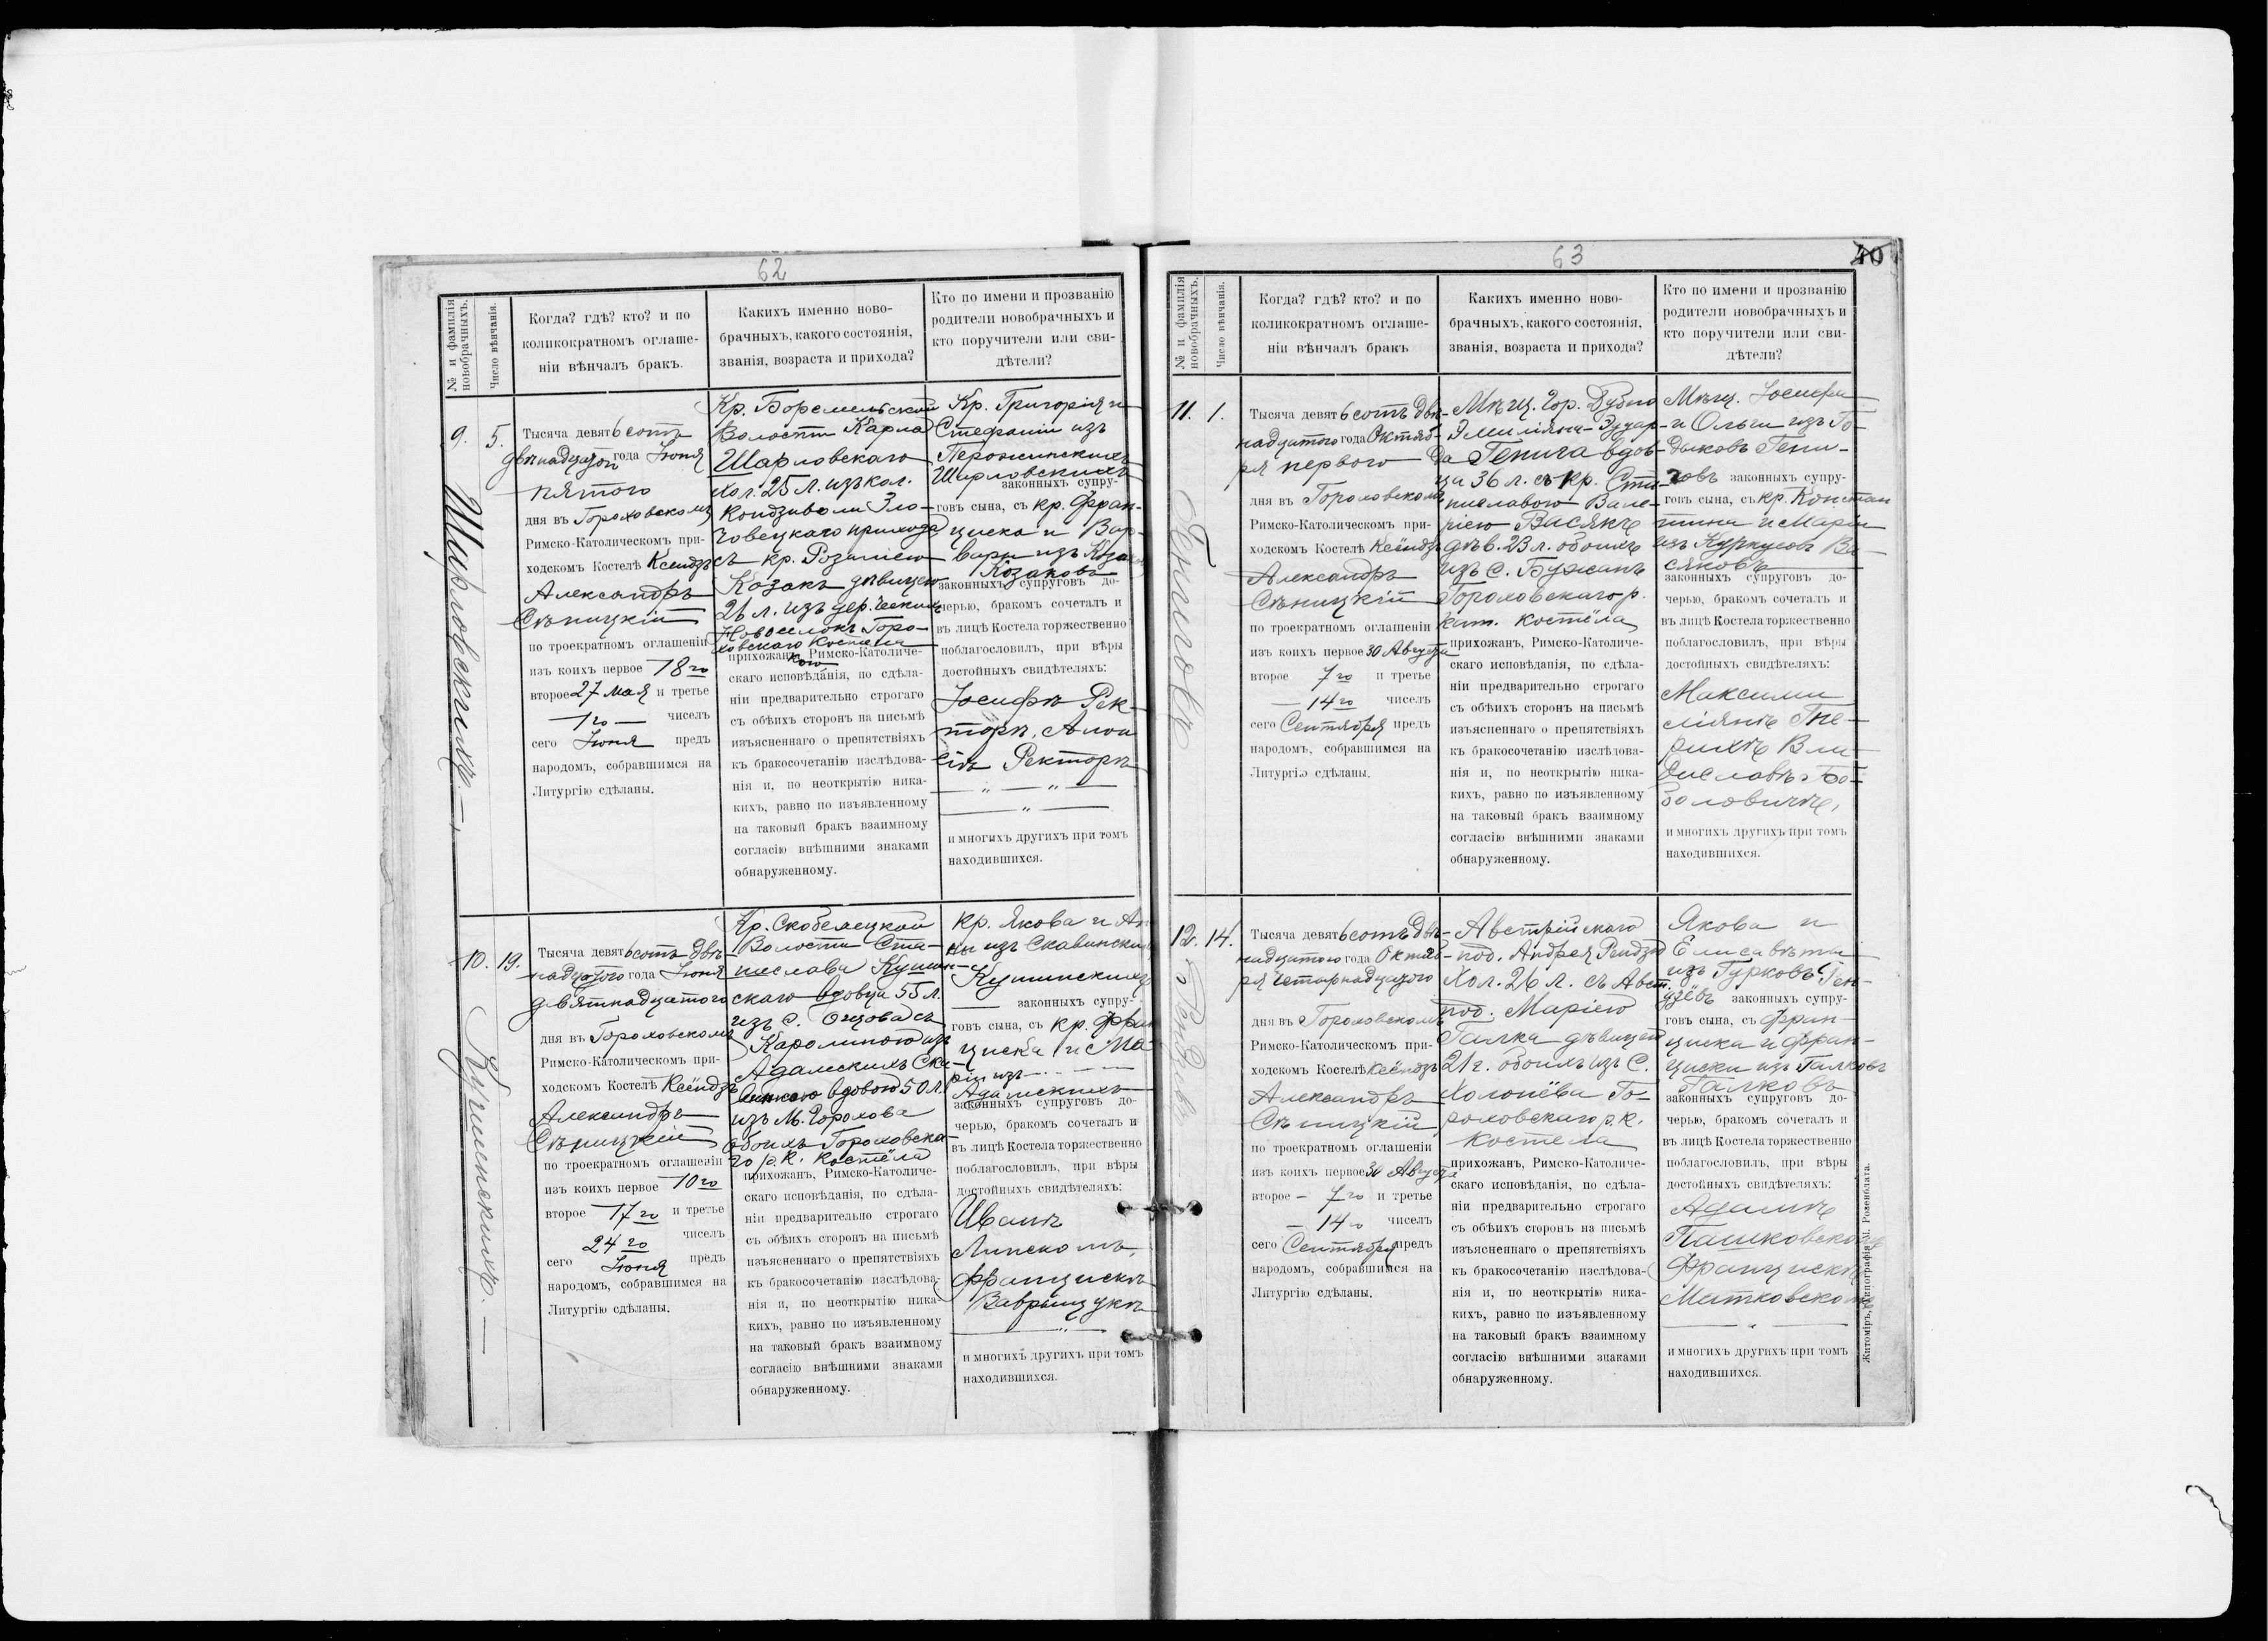 62
№ и фамилія новобрачныхъ.
Число вѣнчанія.
Когда? гдѣ? кто? и по
коликократномъ оглаше-
ніи вѣнчалъ бракъ.
Какихъ именно ново-
брачныхъ, какого состоянія,
званія, возраста и прихода?
Кто по имени и прозванію
родители новобрачныхъ и
кто поручители или сви-
дѣтели?
9.
Шарловскихъ.
5.
Тысяча девятьсотъ
двѣнадцатого года Іюня
пятого
дня въ Гороховскомъ
Римско-Католическомъ при-
ходскомъ Костелѣ Ксендзъ
Александръ
Сѣницкій
по троекратномъ оглашеніи
изъ коихъ первое 18го
второе 27 мая и третье
1го чиселъ
сего Іюня предъ
народомъ, собравшимся на
Литургію сдѣланы.
Кр. Боремельской
Волости Карла
Шарловскаго
Хол. 25 л. изъ кол.
прихода
съ кр. Розаліею
Козакъ дѣвицею
21 л. изъ дер. Чеських
Новоселокъ Горо-
ховскаго Костела
прихожанъ, Римско-Католиче-
скаго исповѣданія, по сдѣла-
ніи предварительно строгаго
съ обѣихъ сторонъ на письмѣ
изъясненнаго о препятствіяхъ
къ бракосочетанію изслѣдова-
нія и, по неоткрытію ника-
кихъ, равно по изъявленному
на таковый бракъ взаимному
согласію внѣшними знаками
обнаруженному.
Кр. Григорія и
Стефаніи изъ
Шарловскихъ
законныхъ супру-
говъ сына, съ кр. Фран-
циска и Вар-
вары изъ
Козаковъ
законныхъ супруговъ до-
черью, бракомъ сочеталъ и
въ лицѣ Костела торжественно
поблагословилъ, при вѣры
достойныхъ свидѣтеляхъ:
Іосифъ Рек-
торъ, Алои
сій Ректоръ
и многихъ другихъ при томъ
находившихся.
10.
Кушинскихъ.
19.
Тысяча девятьсотъ двѣ-
надцатого года Іюня
девятнадцатого
дня въ Гороховскомъ
Римско-Католическомъ при-
ходскомъ Костелѣ Ксёндзъ
Александръ
Сѣницкій
по троекратномъ оглашеніи
изъ коихъ первое 10го
второе 17го и третье
24го чиселъ
сего Іюня предъ
народомъ, собравшимся на
Литургію сдѣланы.
Кр. Скобелецкой
Волости Ста-
нислава Кушин-
скаго вдовца 55 л.
изъ с. Ощова съ
Каролиною изъ
Адамскихъ
вдовою 50 л.
изъ М. Горохова
обоихъ Гороховска-
го р. К. Костёла
прихожанъ, Римско-Католиче-
скаго исповѣданія, по сдѣла-
ніи предварительно строгаго
съ обѣихъ сторонъ на письмѣ
изъясненнаго о препятствіяхъ
къ бракосочетанію изслѣдова-
нія и, по неоткрытію ника-
кихъ, равно по изъявленному
на таковый бракъ взаимному
согласію внѣшними знаками
обнаруженному.
Кр. Якова и Ан
ны изъ
Кушинскихъ
законныхъ супру-
говъ сына, съ кр. Фран
циска и Ма-
ріи изъ
Адамскихъ
законныхъ супруговъ до-
черью, бракомъ сочеталъ и
въ лицѣ Костела торжественно
поблагословилъ, при вѣры
достойныхъ свидѣтеляхъ:
Иванъ
Липскомъ,
Францискъ
Ваврищукъ
и многихъ другихъ при томъ
находившихся.
63
40
№ и фамилія новобрачныхъ.
Число вѣнчанія.
Когда? гдѣ? кто? и по
коликократномъ оглаше-
ніи вѣнчалъ бракъ
Какихъ именно ново-
брачныхъ, какого состоянія,
званія, возраста и прихода?
Кто по имени и прозванію
родители новобрачныхъ и
кто поручители или сви-
дѣтели?
11.
Гениговъ
1.
Тысяча девятьсотъ двѣ-
надцатого года Октяб-
ря первого
дня въ Гороховскомъ
Римско-Католическомъ при-
ходскомъ Костелѣ Ксёндзъ
Александръ
Сѣницкій
по троекратномъ оглашеніи
изъ коихъ первое 30 Августа
второе 7го и третье
14го чиселъ
сего Сентября предъ
народомъ, собравшимся на
Литургію сдѣланы.
Мѣщ. Гор. Дубно
Эмиліяна-Эдуар-
да Генига вдов-
ца 36 л. съ кр. Ста-
ниславою Вале-
ріею Васякъ
дѣв. 23 л. обоихъ
изъ с. Бужанъ
Гороховскаго р.
кат. Костёла
прихожанъ, Римско-Католиче-
скаго исповѣданія, по сдѣла-
ніи предварительно строгаго
съ обѣихъ сторонъ на письмѣ
изъясненнаго о препятствіяхъ
къ бракосочетанію изслѣдова-
нія и, по неоткрытію ника-
кихъ, равно по изъявленному
на таковый бракъ взаимному
согласію внѣшними знаками
обнаруженному.
Мѣщ. Іосифа
и Ольги изъ Го-
дыковъ Гени-
говъ законныхъ супру-
говъ сына, съ кр. Констан
тина и Маріи
изъ Ва-
сяковъ
законныхъ супруговъ до-
черью, бракомъ сочеталъ и
въ лицѣ Костела торжественно
поблагословилъ, при вѣры
достойныхъ свидѣтеляхъ:
Максими
ліянъ Гне-
рихъ Вла-
диславъ Бо-
боловичъ,
и многихъ другихъ при томъ
находившихся.
12.
Рендзёвъ
14.
Тысяча девятьсотъ двѣ-
надцатого года Октяб-
ря четырнадцатого
дня въ Гороховскомъ
Римско-Католическомъ при-
ходскомъ Костелѣ Ксёндзъ
Александръ
Сѣницкій
по троекратномъ оглашеніи
изъ коихъ первое 30 Августа
второе - 7го и третье
14го чиселъ
сего Сентября предъ
народомъ, собравшимся на
Литургію сдѣланы.
Австрійскаго
под. Андрея Рендзю
Хол. 26 л. съ Авст.
под. Маріею
Галка дѣвицею
21 г. обоихъ изъ С.
Холонёва Го-
роховскаго р. К.
Костела
прихожанъ, Римско-Католиче-
скаго исповѣданія, по сдѣла-
ніи предварительно строгаго
съ обѣихъ сторонъ на письмѣ
изъясненнаго о препятствіяхъ
къ бракосочетанію изслѣдова-
нія и, по неоткрытію ника-
кихъ, равно по изъявленному
на таковый бракъ взаимному
согласію внѣшними знаками
обнаруженному.
Якова и
Елисаветы
изъ Турковъ Рен-
дзёвъ законныхъ супру-
говъ сына, съ Фран-
циска и Фран-
циски изъ Галковъ
Галковъ
законныхъ супруговъ до-
черью, бракомъ сочеталъ и
въ лицѣ Костела торжественно
поблагословилъ, при вѣры
достойныхъ свидѣтеляхъ:
Адамъ
Пашковскомъ
Францискъ
Матковскомъ
и многихъ другихъ при томъ
находившихся.
Житоміръ, Типографія М. Розенблата.